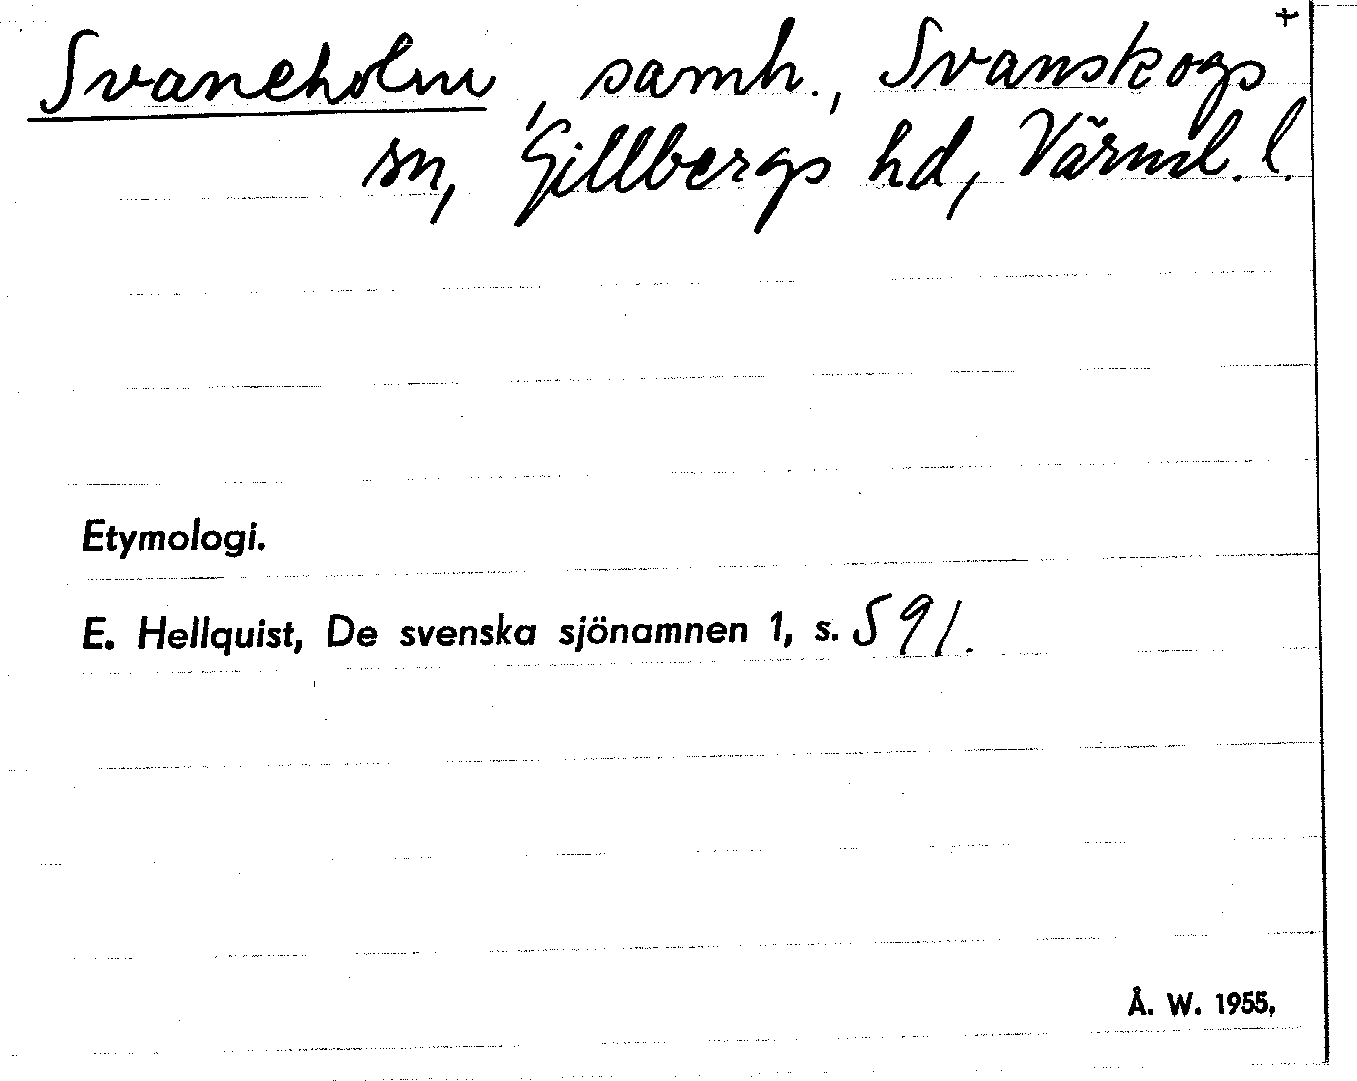 Svaneholm, samh., Svanskogs +
sn, Gillbergs hd, Värml. l.
Etymologi.
E. Hellquist, De svenska sjönamnen 1, s. 591.
Å. W. 1955.